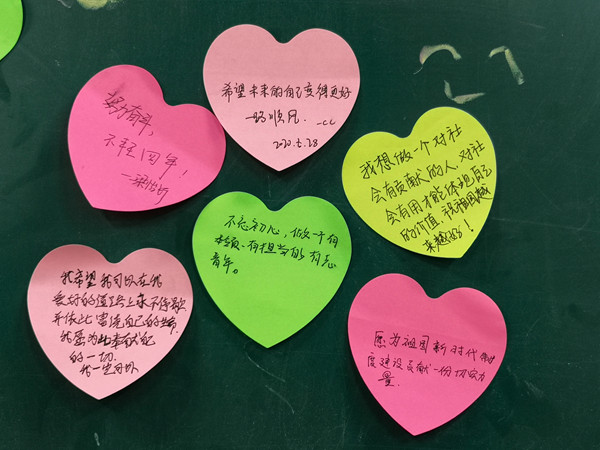 希望未来的自己变得更好
一路顺风. —cc
努力奋斗,
不轻回年!
我想做一个对社
会有贡献的人,对社
会有用才能体现自己
的价值.祝祖国越
来越好!
不忘初心,做一个有
本领、有担当的有志
青年。
我希望我可以在我
爱好的道路上永不停歇
并依此实现自己的
我愿为此奉献
的一切.
我一定可以
愿为祖国新时代
建设贡献一份切实力
量.